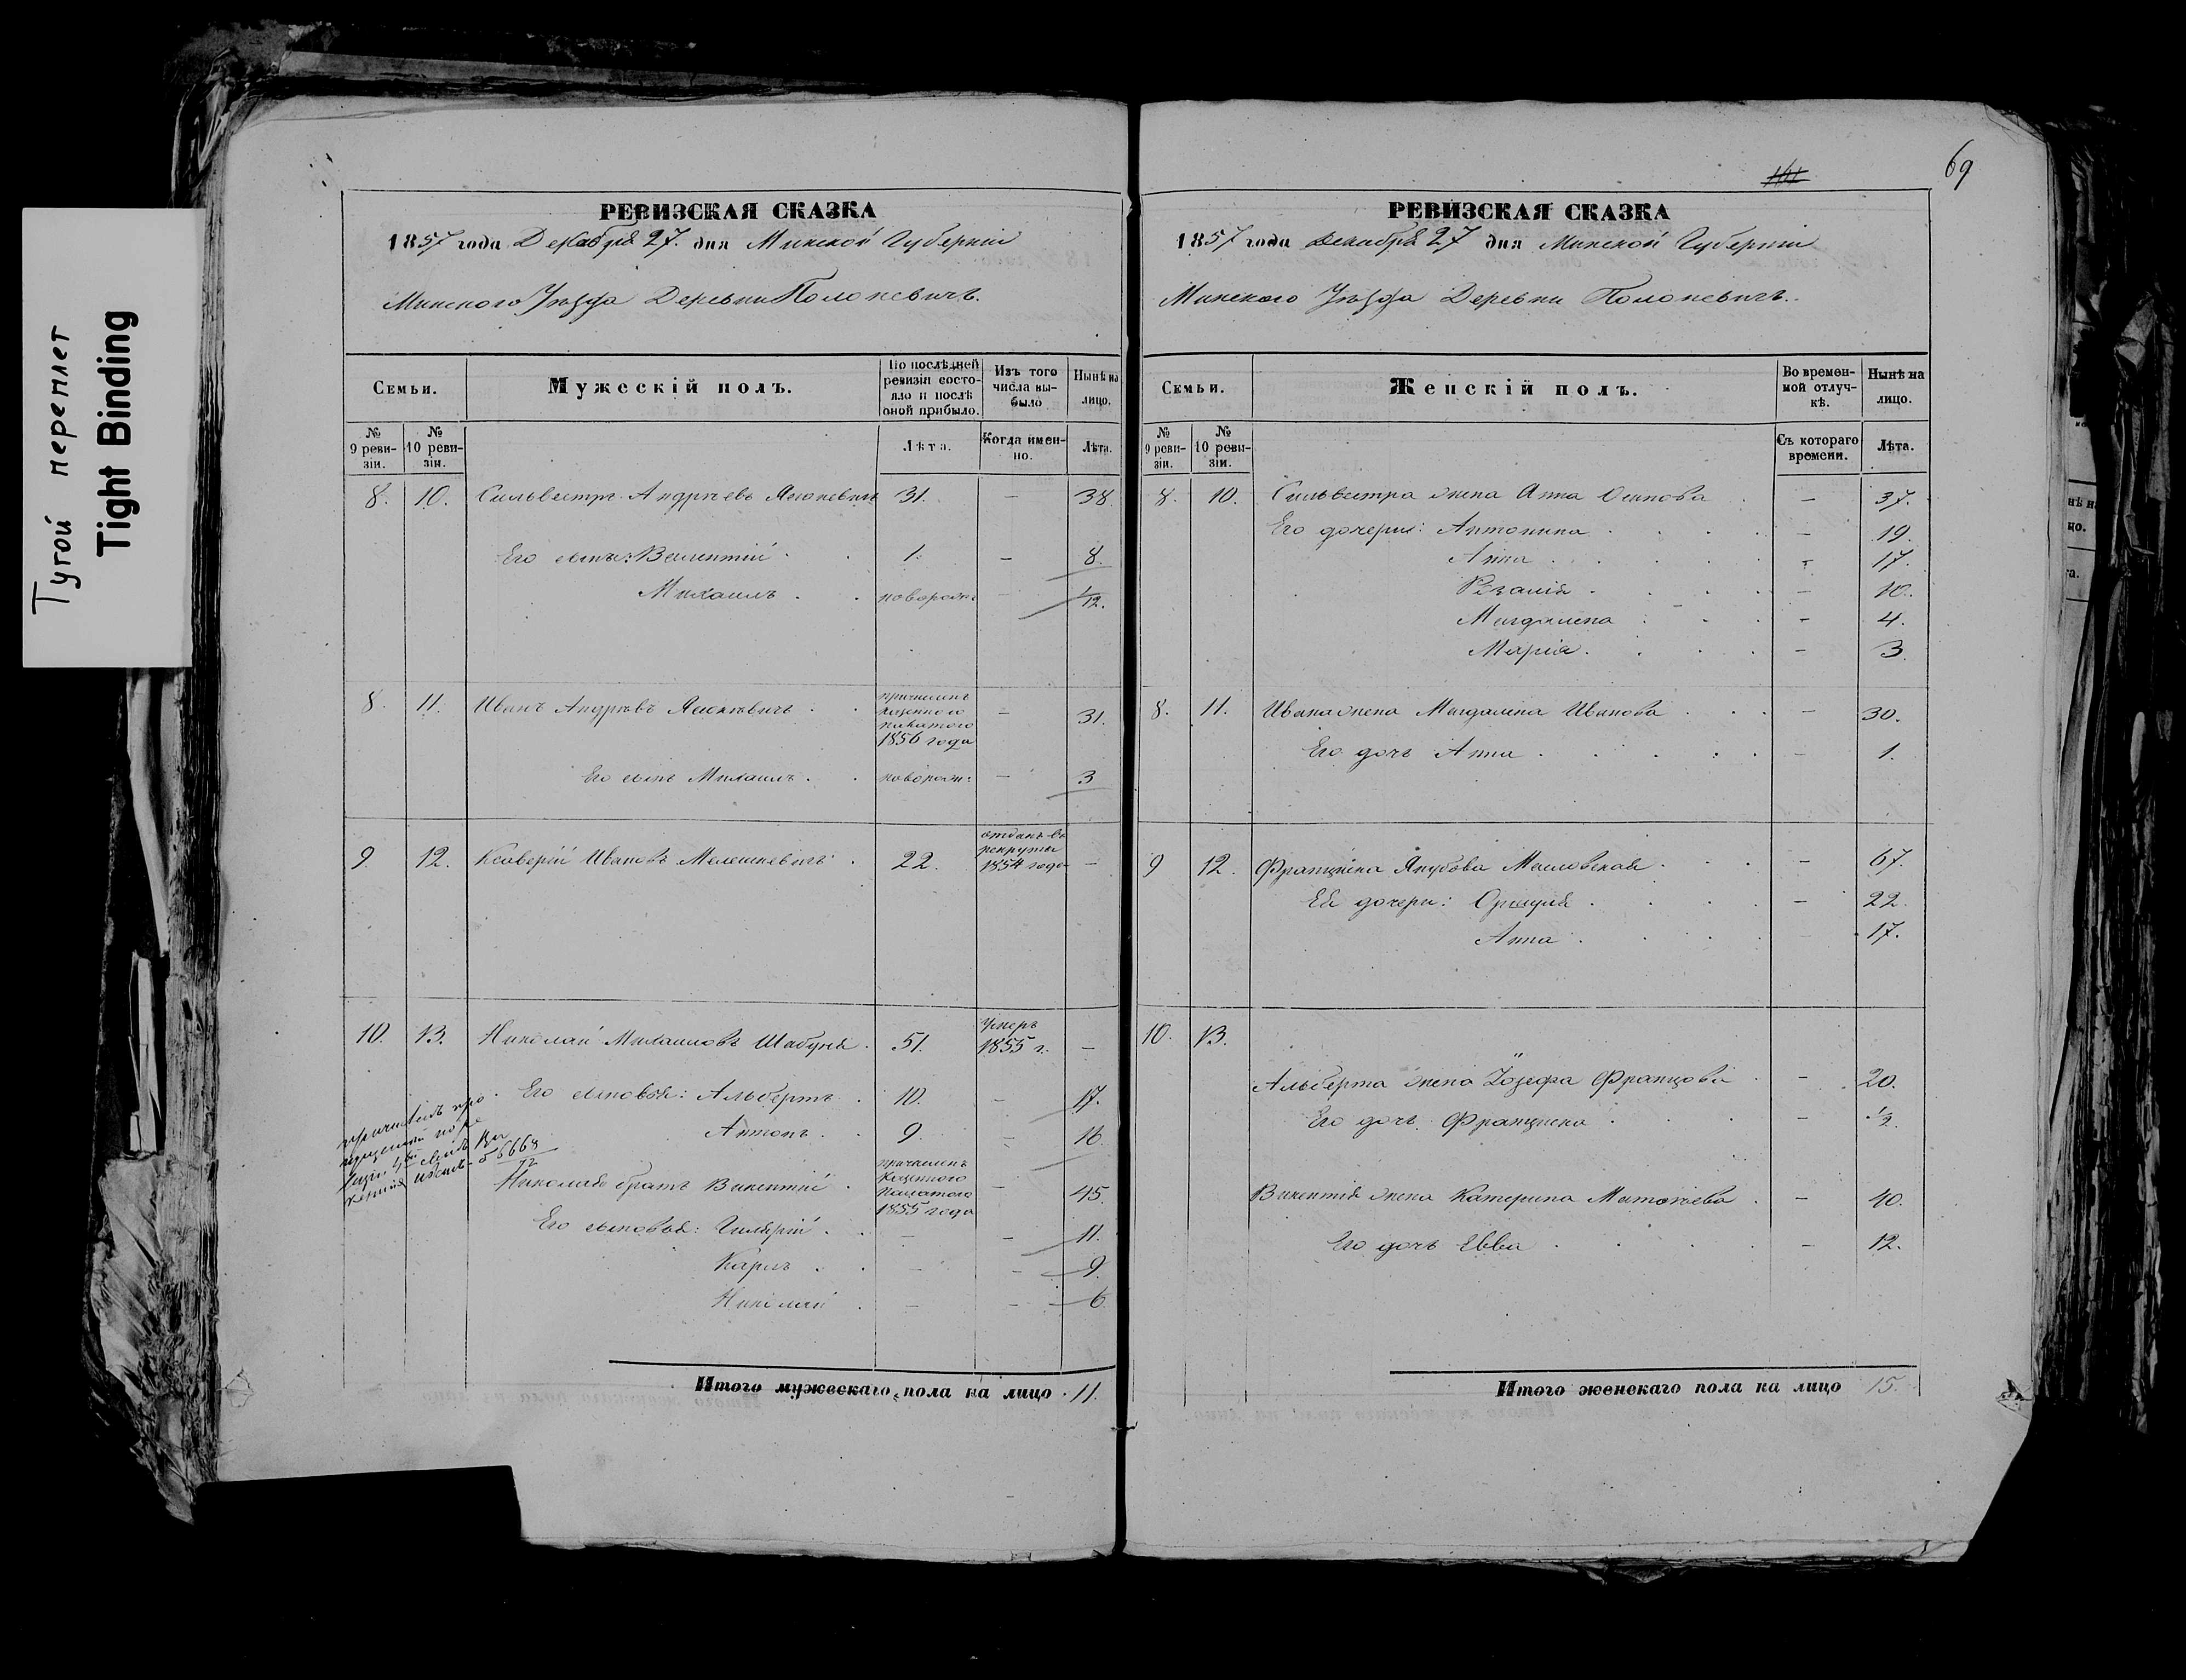 Тугой переплет
Tight Binding
РЕВИЗСКАЯ СКАЗКА
1857 года Декабря 27. дня Минской Губерніи
Минского Уѣзда Деревни Полоневичъ.
Семьи.
Мужескій полъ.
По послѣдней ревизіи состояло и послѣ оной прибыло.
Изъ того числа выбыло
Нынѣ на лицо.
№ 9 ревизіи.
№ 10 ревизіи.
Лѣта.
Когда именно.
Лѣта.
8. 10. Сильвестръ Андреевъ 31. — 38
Его сынъ: Викентій 1. — 8.
Михаилъ новорожд — 1/12.
8. 11. Иванъ Андреевъ причисленъ Казенного Палатого 1856 года — 31.
Его сынъ Михаилъ новорож: — 3
9 12. Ксаверій Ивановъ Мелешкевичъ 22. отданъ въ рекруты 1854 года —
10. 13. Николай Михаиловъ Шабуня 51. Умеръ 1855 г. —
Его сыновья: Альбертъ 10. — 17.
Антонъ 9. — 16.
Николая братъ Викентій причисленъ Казенного Палатого 1855 года — 45.
Его сыновья: — — 11.
Карлъ — — 9.
Николай — — 6.
Итого мужескаго пола на лицо 11.
161
69
РЕВИЗСКАЯ СКАЗКА
1857 года Декабря 27 дня Минской Губерніи
Минского Уѣзда Деревни Полоневичъ.
Семьи.
Женскій полъ.
Во временной отлучкѣ.
Нынѣ на лицо.
№ 9 ревизіи.
№ 10 ревизіи.
Съ котораго времени.
Лѣта.
8. 10. Сильвестра жена Анна Осипова — 37.
Его дочери: Антонина — 19.
Анна — 17.
Розалія — 10.
Магдалена — 4.
Марія — 3.
8. 11. Ивана жена Магдалена Иванова — 30.
Его дочь Анна — 1.
9 12. Францишка Якубова Масловская — 67.
Ея дочери: — 22.
Анна 17.
10. 13.
Альберта жена Іозефа Францова — 20.
Его дочь Францишка — 1/2.
Викентія жена Катерина — 40.
Его дочь Евва — 12.
Итого женскаго пола на лицо 15.